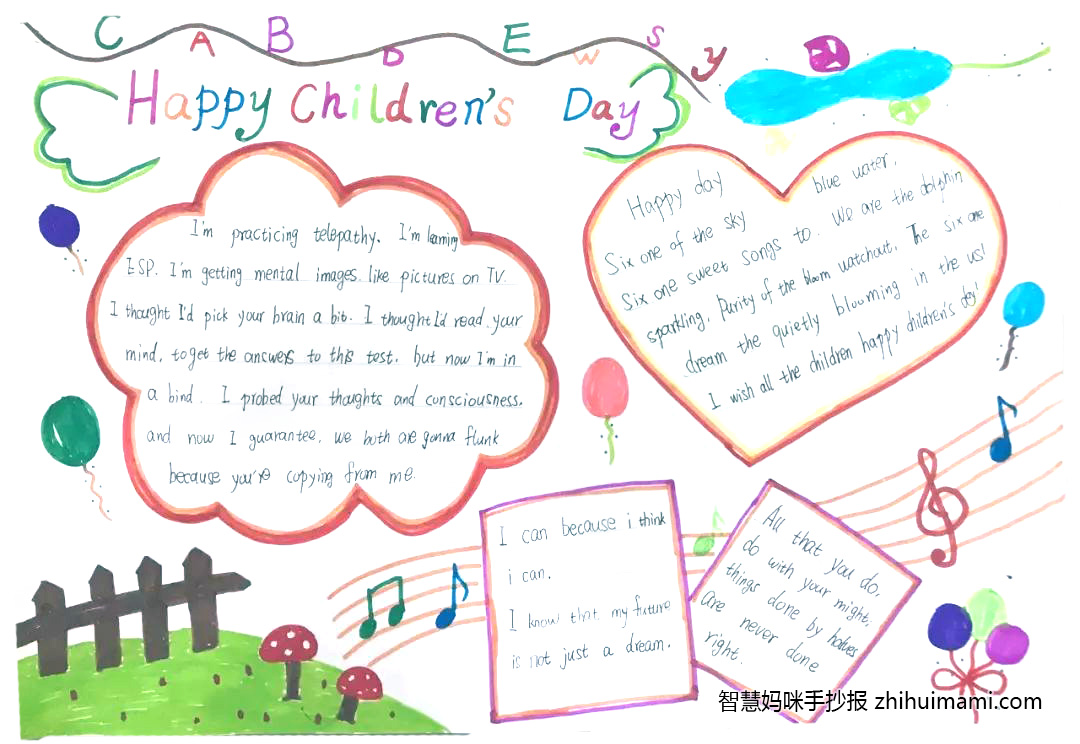 C A B D E W S y
Happy Children's Day
I'm practicing telepathy. I'm learning
ESP. I'm getting mental images like pictures on TV.
I thought I'd pick your brain a bit. I thought I'd read your
mind, to get the answers to this test. but now I'm in
a bind. I probed your thoughts and consciousness.
and now I guarantee. we both are gonna flunk
because you're copying from me.
Happy day blue water.
Six one of the sky We are the dolphin
Six one sweet songs to. The six one
sparkling. Purity of the bloom watchout.
dream the quietly blooming in the us!
I wish all the children happy children's day!
I can because i think
i can.
I know that my future
is not just a dream.
All that you do.
do with your might.
things done by halves
are never done
right.
智慧妈咪手抄报 zhihuimami.com